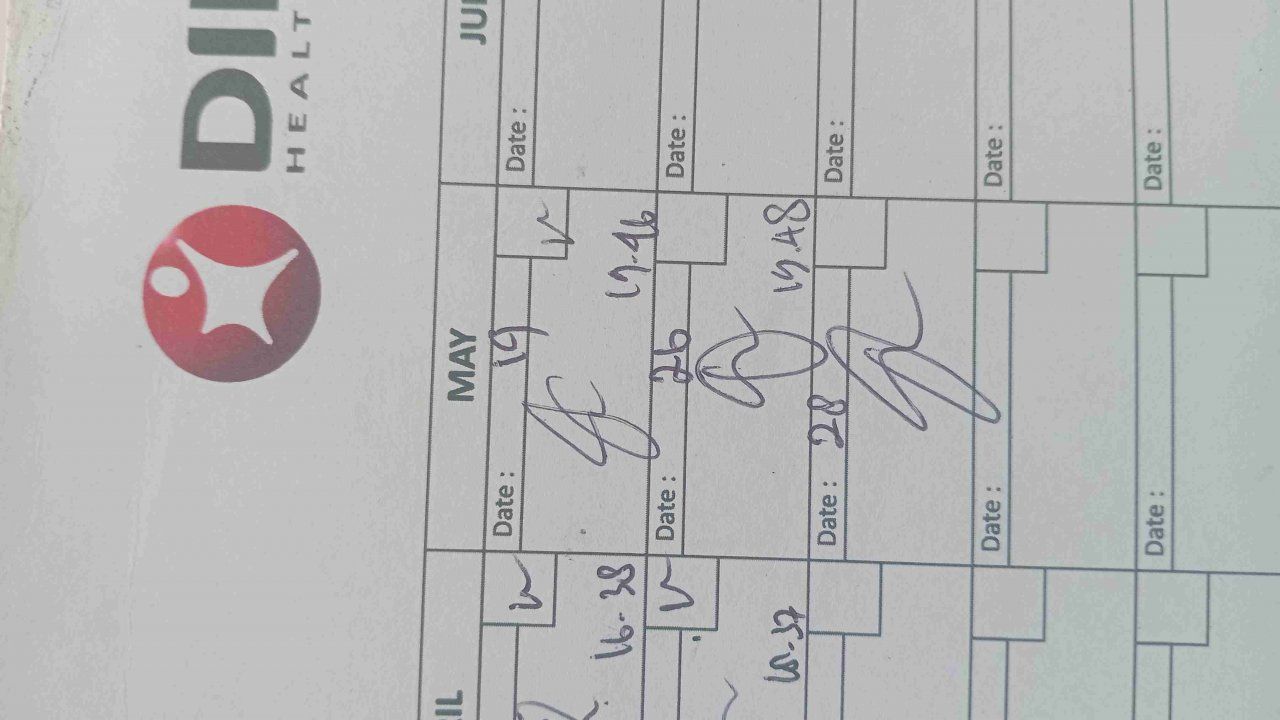 DI
HEALT
IL MAY JU
Date : 19 Date :
V V
16-38 19-46
Date : 26 Date :
V
19.48
Date : 28 Date :
Date : Date :
Date : Date :